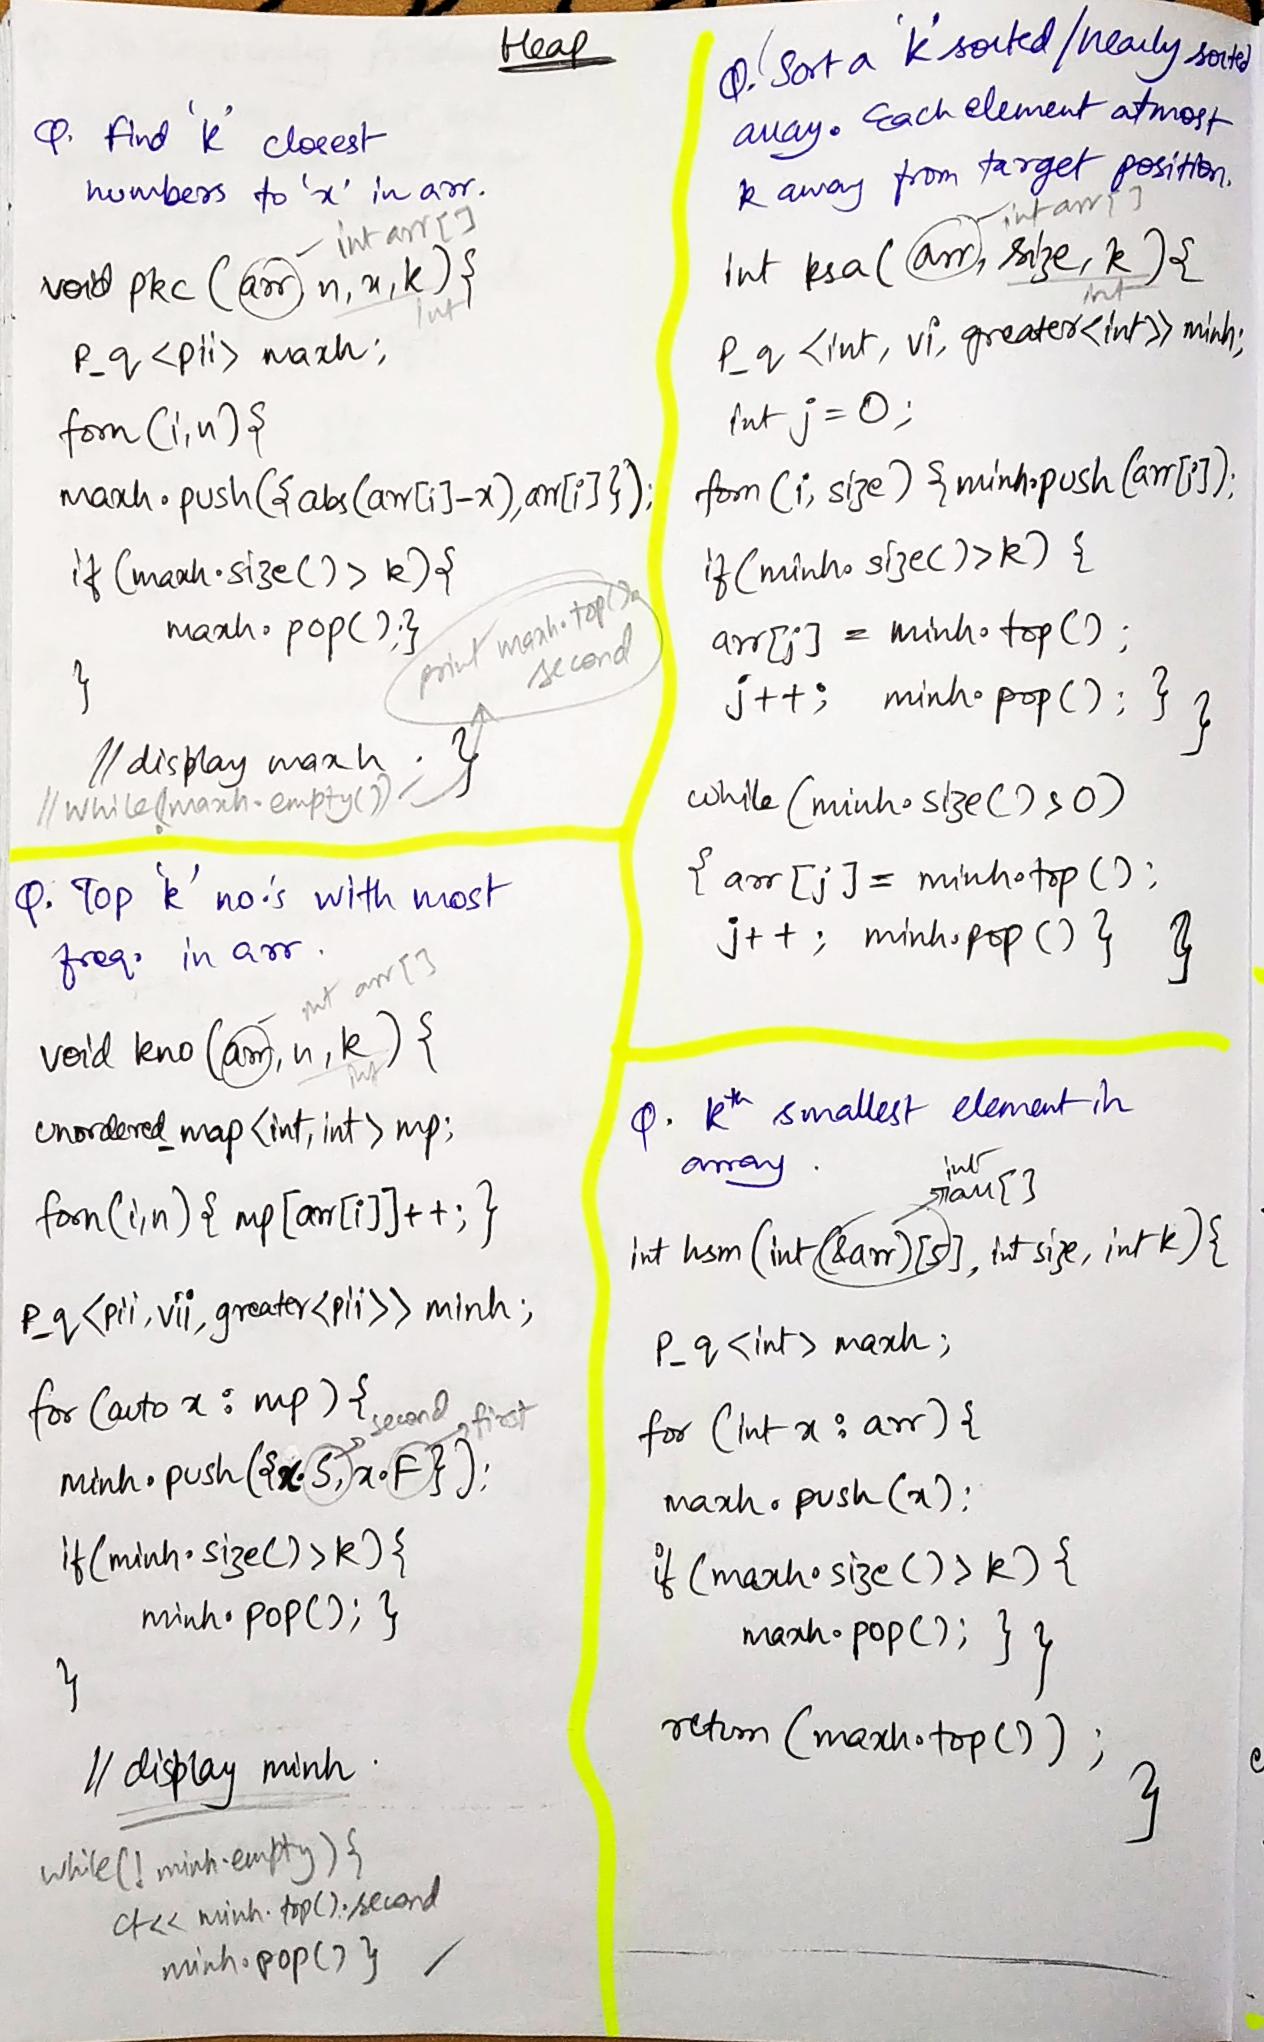 Heap
Q. Find 'k' closest
numbers to 'x' in arr.
int arr[]
void pkc (arr, n, x, k) {
int
p_q <pii> maxh;
forn (i, n) {
maxh.push({abs(arr[i]-x), arr[i]});
if (maxh.size() > k) {
maxh.pop();}
}
print maxh.top().
second
// display maxh . }
// while(!maxh.empty())
Q. Top 'k' no.'s with most
freq. in arr.
int arr[]
void kno (arr, n, k) {
int
unordered_map <int, int> mp;
forn(i,n) { mp[arr[i]]++; }
p_q <pii, vii, greater<pii>> minh;
for (auto x : mp) {
second
first
minh.push({x.S, x.F});
if(minh.size() > k) {
minh.pop(); }
}
// display minh.
while(! minh.empty) {
ct<< minh.top().second
minh.pop() }
Q. Sort a 'k' sorted/nearly sorted
array. Each element atmost
k away from target position.
int arr[]
int ksa( arr, size, k ) {
int
p_q <int, vi, greater<int>> minh;
int j = 0;
forn (i, size) { minh.push (arr[i]);
if(minh.size() > k) {
arr[j] = minh.top();
j++; minh.pop(); } }
while (minh.size() > 0)
{ arr [j] = minh.top();
j++; minh.pop() } }
Q. kth smallest element in
array.
int
arr[]
int hsm (int (&arr)[5], int size, int k) {
p_q <int> maxh;
for (int x : arr) {
maxh.push(x);
if (maxh.size() > k) {
maxh.pop(); } }
return (maxh.top());
}